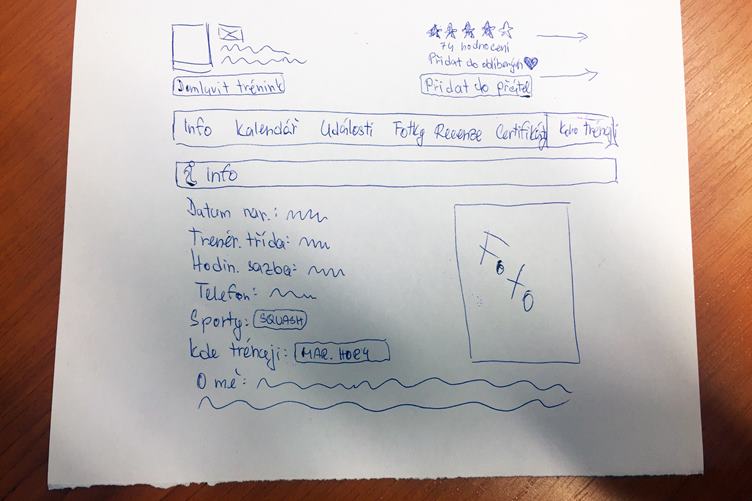 74 hodnocení
Přidat do oblíbených
Domluvit trénink
Přidat do přátel
Info Kalendář Události Fotky Recenze Certifikáty Kde trénuji
Info
Datum nar.:
Trenér. třída:
Hodin. sazba:
Telefon:
Sporty: SQUASH
Kde trénuji: MAR. HORY
O mě:
Foto